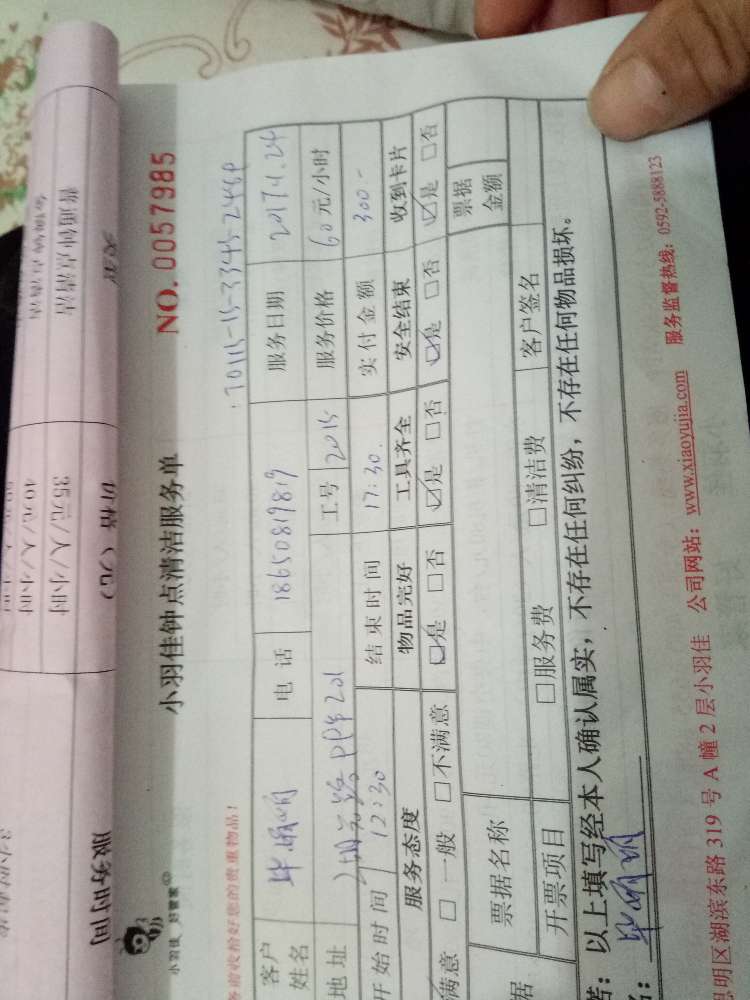 小羽佳 好管家
小羽佳钟点清洁服务单
NO. 0057985
务前收拾好您的贵重物品!
客户姓名
电话 18650819819
服务日期 2017.4.24
地址
工号 2015
服务价格 60元/小时
开始时间 12:30
结束时间 17:30.
实付金额 300-
服务态度 物品完好 工具齐全 安全结束 收到卡片
满意 □ 一般 □不满意 ☑是 □否 ☑是 □否 ☑是 □否 ☑是 □否
票据名称
票据金额
据
开票项目 □服务费 □清洁费 客户签名
: 以上填写经本人确认属实,不存在任何纠纷,不存在任何物品损坏。
思明区湖滨东路 319 号 A 幢 2 层小羽佳 公司网站: www.xiaoyujia.com 服务监督热线: 0592-5888123
服务时间 价格(元)
35元/人/小时 普通钟点清洁
40元/人/小时